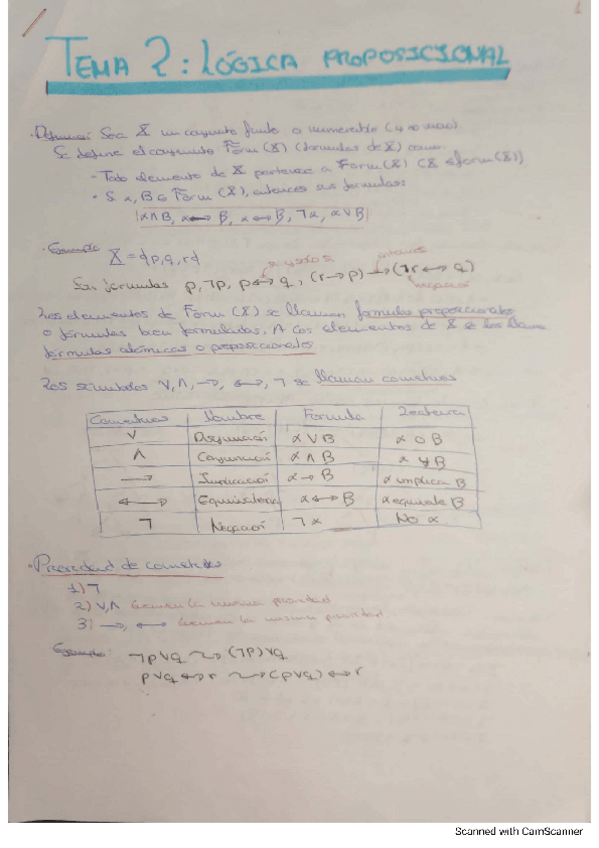 1
TEMA 2: LÓGICA PROPOSICIONAL
· Sea X un conjunto finito o numerable
Se define el conjunto Form(X) (fórmulas de X) como:
- Todo elemento de X pertenece a Form(X) (X ⊆ form(X))
· Si α, B ∈ Form(X), entonces son fórmulas:
α∧B, α→B, α↔B, ¬α, α∨B
· Ejemplo X={p,q,r}
Son fórmulas p, ¬p, p↔q, (r→p)→(¬r↔q)
negación
Los elementos de Form(X) se llaman fórmulas proposicionales
o fórmulas bien formuladas. A los elementos de X se les llama
fórmulas atómicas o proposicionales
Los símbolos ∨, ∧, →, ↔, ¬ se llaman conectivas
Conectivas Nombre Fórmula Lectura
∨ Disyunción α∨B α o B
∧ Conjunción α∧B α y B
→ Implicación α→B α implica B
↔ Equivalencia α↔B α equivale B
¬ Negación ¬α No α
· Prioridad de conectivas
1) ¬
2) ∨,∧ tienen la misma prioridad
3) →, ↔ tienen la misma prioridad
Ejemplo: ¬p∨q ⤳ (¬p)∨q
p∨q↔r ⤳ (p∨q)↔r
Scanned with CamScanner